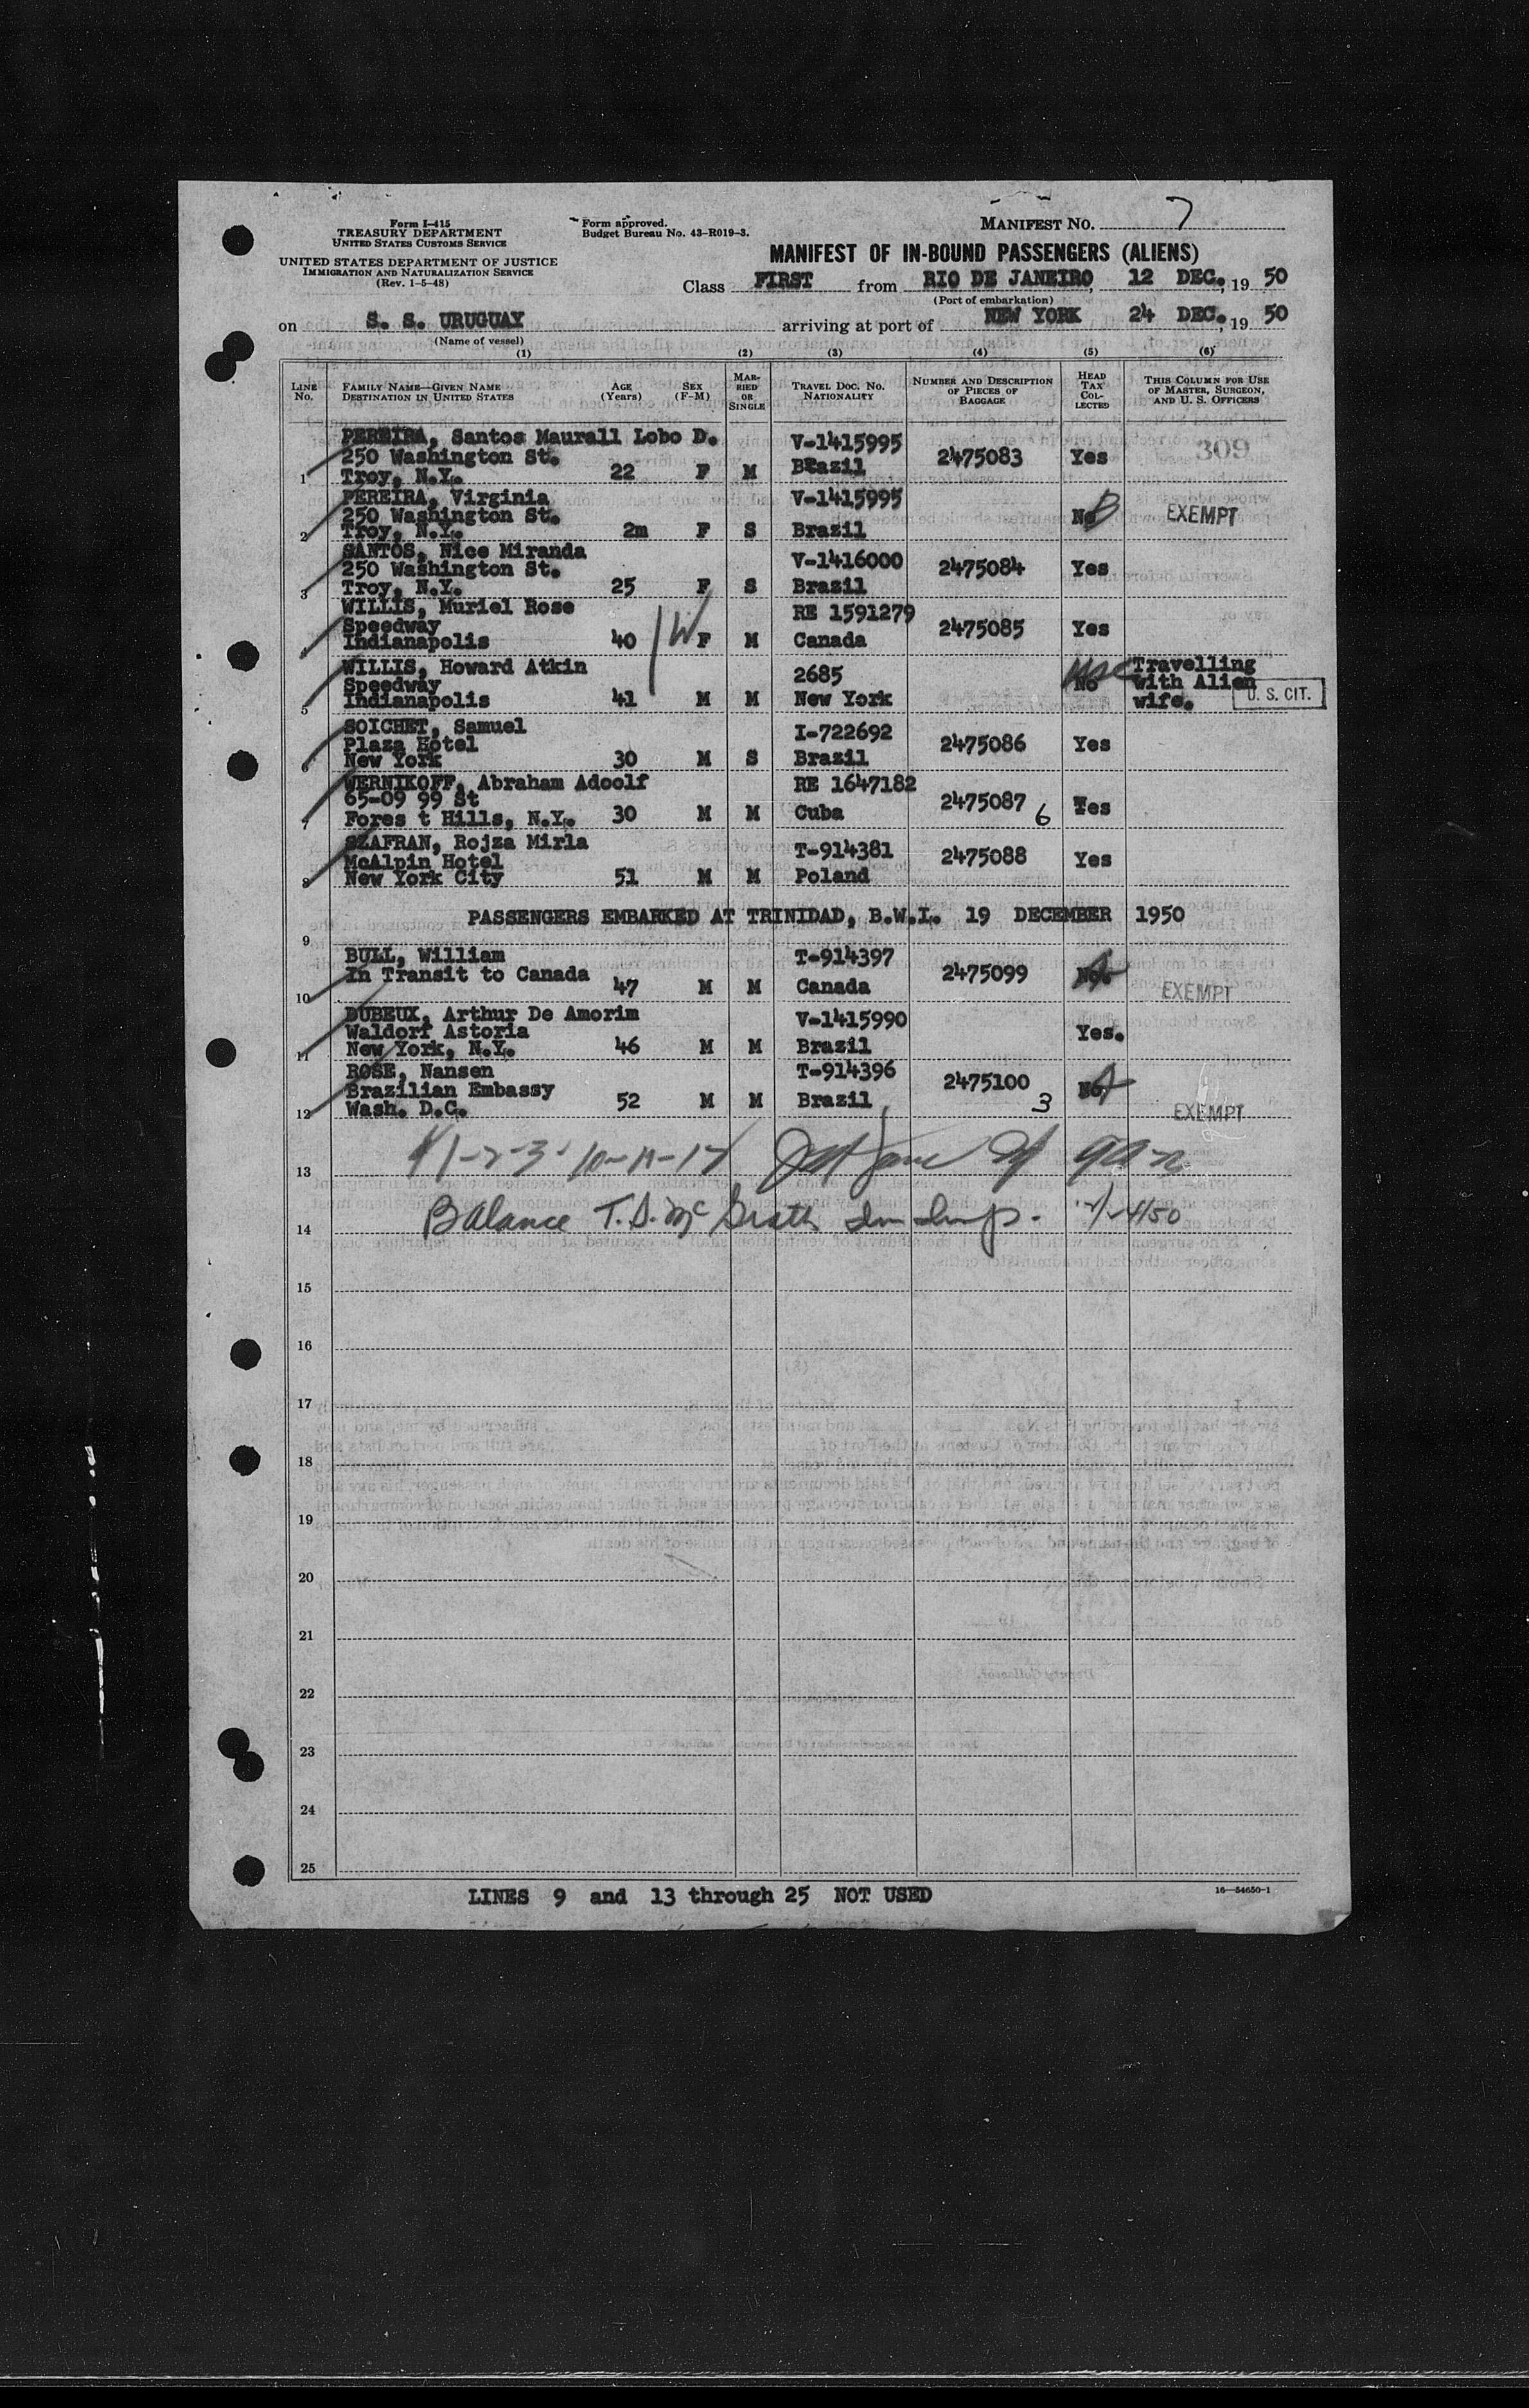 Form I-415
TREASURY DEPARTMENT
UNITED STATES CUSTOMS SERVICE
UNITED STATES DEPARTMENT OF JUSTICE
IMMIGRATION AND NATURALIZATION SERVICE
(Rev. 1-5-48)
Form approved.
Budget Bureau No. 43-R019-3.
MANIFEST NO. 7
MANIFEST OF IN-BOUND PASSENGERS (ALIENS)
Class FIRST from RIO DE JANEIRO, 12 DEC., 19 50
(Port of embarkation)
on S. S. URUGUAY arriving at port of NEW YORK 24 DEC., 19 50
(Name of vessel)
(1) (2) (3) (4) (5) (6)
LINE NO. FAMILY NAME—GIVEN NAME DESTINATION IN UNITED STATES AGE (YEARS) SEX (F-M) MARRIED OR SINGLE TRAVEL DOC. NO. NATIONALITY NUMBER AND DESCRIPTION OF PIECES OF BAGGAGE HEAD TAX COLLECTED THIS COLUMN FOR USE OF MASTER, SURGEON, AND U. S. OFFICERS
PEREIRA, Santos Maurall Lobo D. V-1415995 309
250 Washington St. 2475083 Yes
1 Troy, N.Y. 22 F M Brazil
PEREIRA, Virginia V-1415995
250 Washington St. No EXEMPT
2 Troy, N.Y. 2m F S Brazil
SANTOS, Nice Miranda V-1416000
250 Washington St. 2475084 Yes
3 Troy, N.Y. 25 F S Brazil
WILLIS, Muriel Rose RE 1591279
Speedway 2475085 Yes
4 Indianapolis 40 F M Canada
WILLIS, Howard Atkin 2685 Travelling
Speedway No with Alien U. S. CIT.
5 Indianapolis 41 M M New York wife.
SOICHET, Samuel I-722692
Plaza Hotel 2475086 Yes
6 New York 30 M S Brazil
WERNIKOFF, Abraham Adoolf RE 1647182
65-09 99 St 2475087 6 Yes
7 Fores t Hills, N.Y. 30 M M Cuba
SZAFRAN, Rojza Mirla T-914381
McAlpin Hotel 2475088 Yes
8 New York City 51 M M Poland
PASSENGERS EMBARKED AT TRINIDAD, B.W.I. 19 DECEMBER 1950
9
BULL, William T-914397
In Transit to Canada 2475099 No.
10 47 M M Canada EXEMPT
DUBEUX, Arthur De Amorim V-1415990
Waldorf Astoria Yes.
11 New York, N.Y. 46 M M Brazil
ROSE, Nansen T-914396
Brazilian Embassy 2475100 3 No
12 Wash. D.C. 52 M M Brazil EXEMPT
13
14 Balance T.S. McGrath
15
16
17
18
19
20
21
22
23
24
25
LINES 9 and 13 through 25 NOT USED
16—54650-1